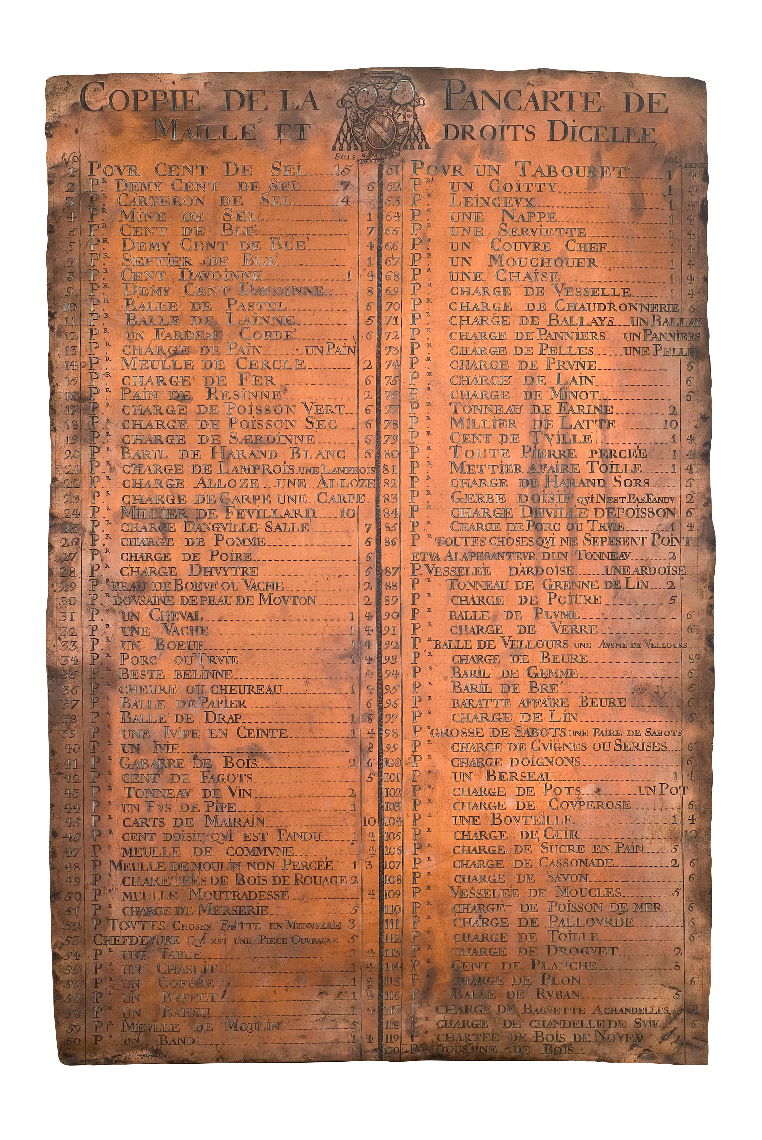 COPPIE DE LA PANCARTE DE
MAILLE ET DROITS DICELLE
SOLS
1 POVR CENT DE SEL 15
2 PR DEMY CENT DE SEL 7 6
3 PR CARTERON DE SEL 4
4 PR MINE DE SEL 1
5 PR CENT DE BLE 7
6 PR DEMY CENT DE BLE 4
7 PR SEPTIER DE BLE 1
8 PR CENT DAVOINNE 1 4
9 PR DEMY CENT DAVOINNE 8
10 PR BALLE DE PASTEL 6
11 PR BALLE DE LAINNE 5
12 PR UN FARDEAU CORDE 6
13 PR CHARGE DE PAIN UN PAIN
14 PR MEULLE DE CERCLE 2
15 PR CHARGE DE FER 6
16 PR PAIN DE RESINNE 2
17 PR CHARGE DE POISSON VERT 6
18 PR CHARGE DE POISSON SEC 6
19 PR CHARGE DE SÆRDINNE 5
20 PR BARIL DE HARAND BLANC 5
21 PR CHARGE DE LAMPROIS UNE LAMPROIS
22 PR CHARGE ALLOZE UNE ALLOZE
23 PR CHARGE DE CARPE UNE CARPE
24 PR MILLIER DE FEVILLARD 10
25 PR CHARGE DANGVILLE SALLE 7
26 PR CHARGE DE POMME 6
27 PR CHARGE DE POIRE 5
28 PR CHARGE DHVYTRE 6
29 PR PEAU DE BOEVF OU VACHE 2
30 PR DOVSAINE DE PEAU DE MOVTON 2
31 PR UN CHEVAL 1 4
32 PR UNE VACHE 1 4
33 PR UN BOEUF 1 4
34 PR PORC OU TRVIE 1 4
35 PR BESTE BELINNE 4
36 PR CHEURE OU CHEUREAU 1 4
37 PR BALLE DE PAPIER 6
38 PR BALLE DE DRAP 1 8
39 PR UNE IVIFE EN CEINTE 1 4
40 PR UN IVIF 8
41 PR GABARRE DE BOIS 2 6
42 PR CENT DE FAGOTS 5
43 PR TONNEAV DE VIN 2
44 PR UN FVS DE PIPE 1
45 PR CARTS DE MAIRAIN 10
46 PR CENT DOISIF QVI EST FANDU 4
47 PR MEULLE DE COMMVNE 4
48 PR MEULLE DE MOULIN NON PERCÉE 1 3
49 PR CHARETÉES DE BOIS DE ROUAGE 2
50 PR MEULLE MOUTRADESSE 4
51 PR CHARGE DE MERSERIE 5
52 PR TOVTTES CHOSES FAITTE EN MENVSERIE 3
53 CHEFDEVVRE QVI EST UNE PIECE OUVRAGNE 5
54 PR UNE TABLE 4
55 PR UN CHASLIT 4
56 PR UN COFFRE 1 4
57 PR UN BUFFET 1 4
58 PR UN BAHEU 4
59 PR MEULLE DE MOULIN 5
60 PR UN BAND 1 4
61 POVR UN TABOURET 1 4
62 PR UN COITTY 1 4
63 PR LEINCEVX 1 4
64 PR UNE NAPPE 1 4
65 PR UNE SERVIETTE 1 4
66 PR UN COUVRE CHEF 1 4
67 PR UN MOUCHQUER 1 4
68 PR UNE CHAISE 1 4
69 PR CHARGE DE VESSELLE 1 4
70 PR CHARGE DE CHAUDRONNERIE 6
71 PR CHARGE DE BALLAYS UN BALLAY
72 PR CHARGE DE PANNIERS UN PANNIERS
73 PR CHARGE DE PELLES UNE PELLE
74 PR CHARGE DE PRVNE 6
75 PR CHARGE DE LAIN 6
76 PR CHARGE DE MINOT 5
77 PR TONNEAU DE FARINE 2
78 PR MILLIER DE LATTE 10
79 PR CENT DE TVILLE 1 4
80 PR TOUTE PIERRE PERCÉE 1 4
81 PR METTIER AFAIRE TOILLE 1 4
82 PR CHARGE DE HARAND SORS 5
83 PR GERBE DOISIF QVI NEST PAS FANDV 2
84 PR CHARGE DHVILLE DEPOISSON 6
85 PR CHARGE DE PORC OU TRVIE 1 4
86 PR TOUTTES CHOSES QVI NE SEPESENT POINT
ETVA ALAPESANTEVR DUN TONNEAV 2
87 PR VESSELEE DARDOISE UNE ARDOISE
88 PR TONNEAU DE GRENNE DE LIN 2
89 PR CHARGE DE POTURE 5
90 PR BALLE DE PLVME 6
91 PR CHARGE DE VERRE 6
92 PR BALLE DE VELLOURS UNE AVSNE DE VELLOURS
93 PR CHARGE DE BEURE 8
94 PR BARIL DE GEMME 6
95 PR BARIL DE BRÉ 6
96 PR BARATTE AFFAIRE BEURE 6
97 PR CHARGE DE LIN 5
98 PR GROSSE DE SABOTS UNE PAIRE DE SABOTS
99 PR CHARGE DE GVIGNES OU SERISES 6
100 PR CHARGE DOIGNONS 6
101 PR UN BERSEAU 1 4
102 PR CHARGE DE POTS UN POT
103 PR CHARGE DE COVPEROSE 6
104 PR UNE BOVTEILLE 1 4
105 PR CHARGE DE CUIR 10
106 PR CHARGE DE SUCRE EN PAIN 5
107 PR CHARGE DE CASSONADE 2 6
108 PR CHARGE DE SAVON 6
109 PR VESSELEE DE MOUCLES 5
110 PR CHARGE DE POISSON DE MER 6
111 PR CHARGE DE PALLOVRDE 6
112 PR CHARGE DE TOILLE 6
113 PR CHARGE DE DROGVET 2
114 PR CENT DE PLANCHE 8
115 PR CHARGE DE PLON 6
116 PR BALLE DE RVBAN 5
117 PR CHARGE DE BAGUETTE ACHANDELLES 2
118 PR CHARGE DE CHANDELLE DE SVIF 6
119 PR CHARTÉE DE BOIS DE NOYER 1
120 PR DOUSAINE DE BOIS